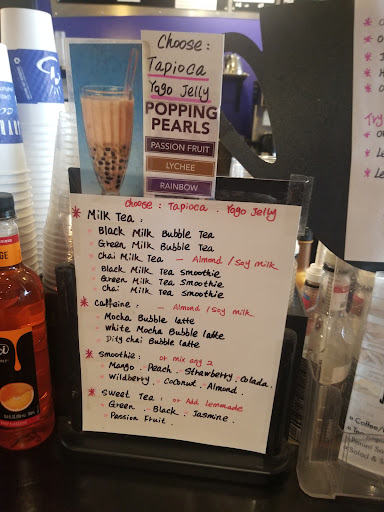 Choose:
Tapioca
Yogo Jelly
POPPING
PEARLS
PASSION FRUIT
LYCHEE
RAINBOW
choose: Tapioca . Yogo Jelly
* Milk Tea:
Black Milk Bubble Tea
Green Milk Bubble Tea
Chai Milk Tea — Almond / Soy milk
Black Milk Tea smoothie
Green Milk Tea Smoothie
Chai Milk Tea smoothie
* Caffeine: — Almond / Soy milk
Mocha Bubble latte
White Mocha Bubble latte
Dirty chai Bubble latte
* smoothie: or mix any 2
Mango . Peach . Strawberry . Colada .
Wildberry . Coconut . Almond .
* Sweet Tea: or Add Lemonade
Green . Black . Jasmine .
Passion Fruit .